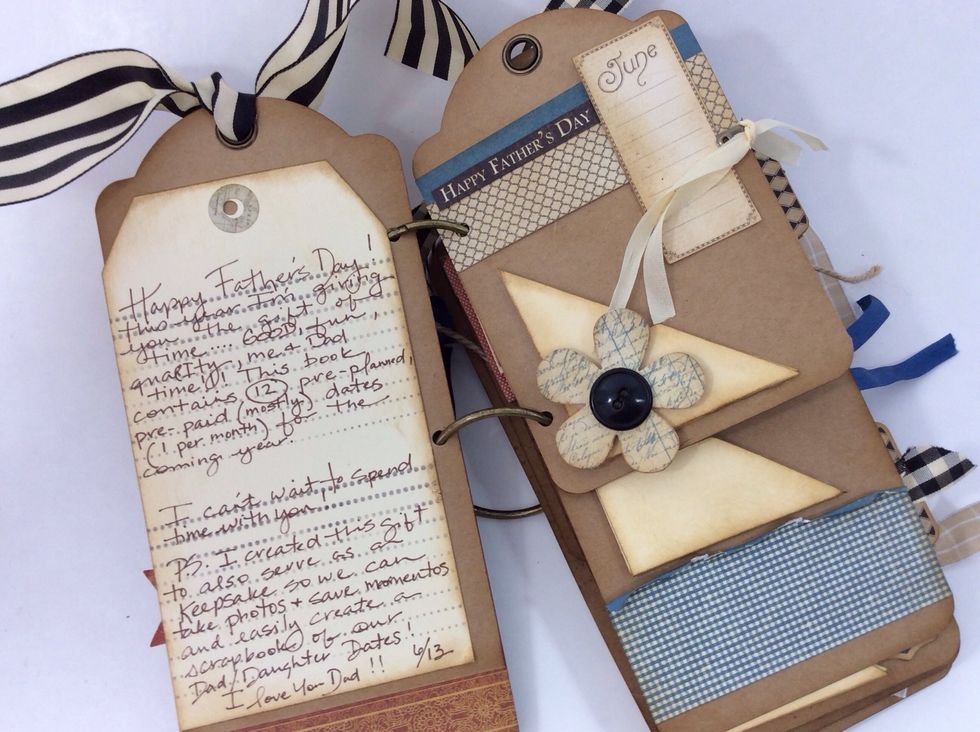 Happy Father's Day!
this year I'm giving
you the gift of
time... GOOD, fun,
quality, me & Dad
time!! This book
contains 12 pre-planned,
pre-paid (mostly) dates
(1 per month) for the
coming year.
I can't wait to spend
time with you...
PS. I created this gift
to also serve as a
keepsake so we can
take photos + save momentos
and easily create a
scrapbook of our
Dad/Daughter Dates!
I love You Dad!! 6/13
June
Happy Father's Day